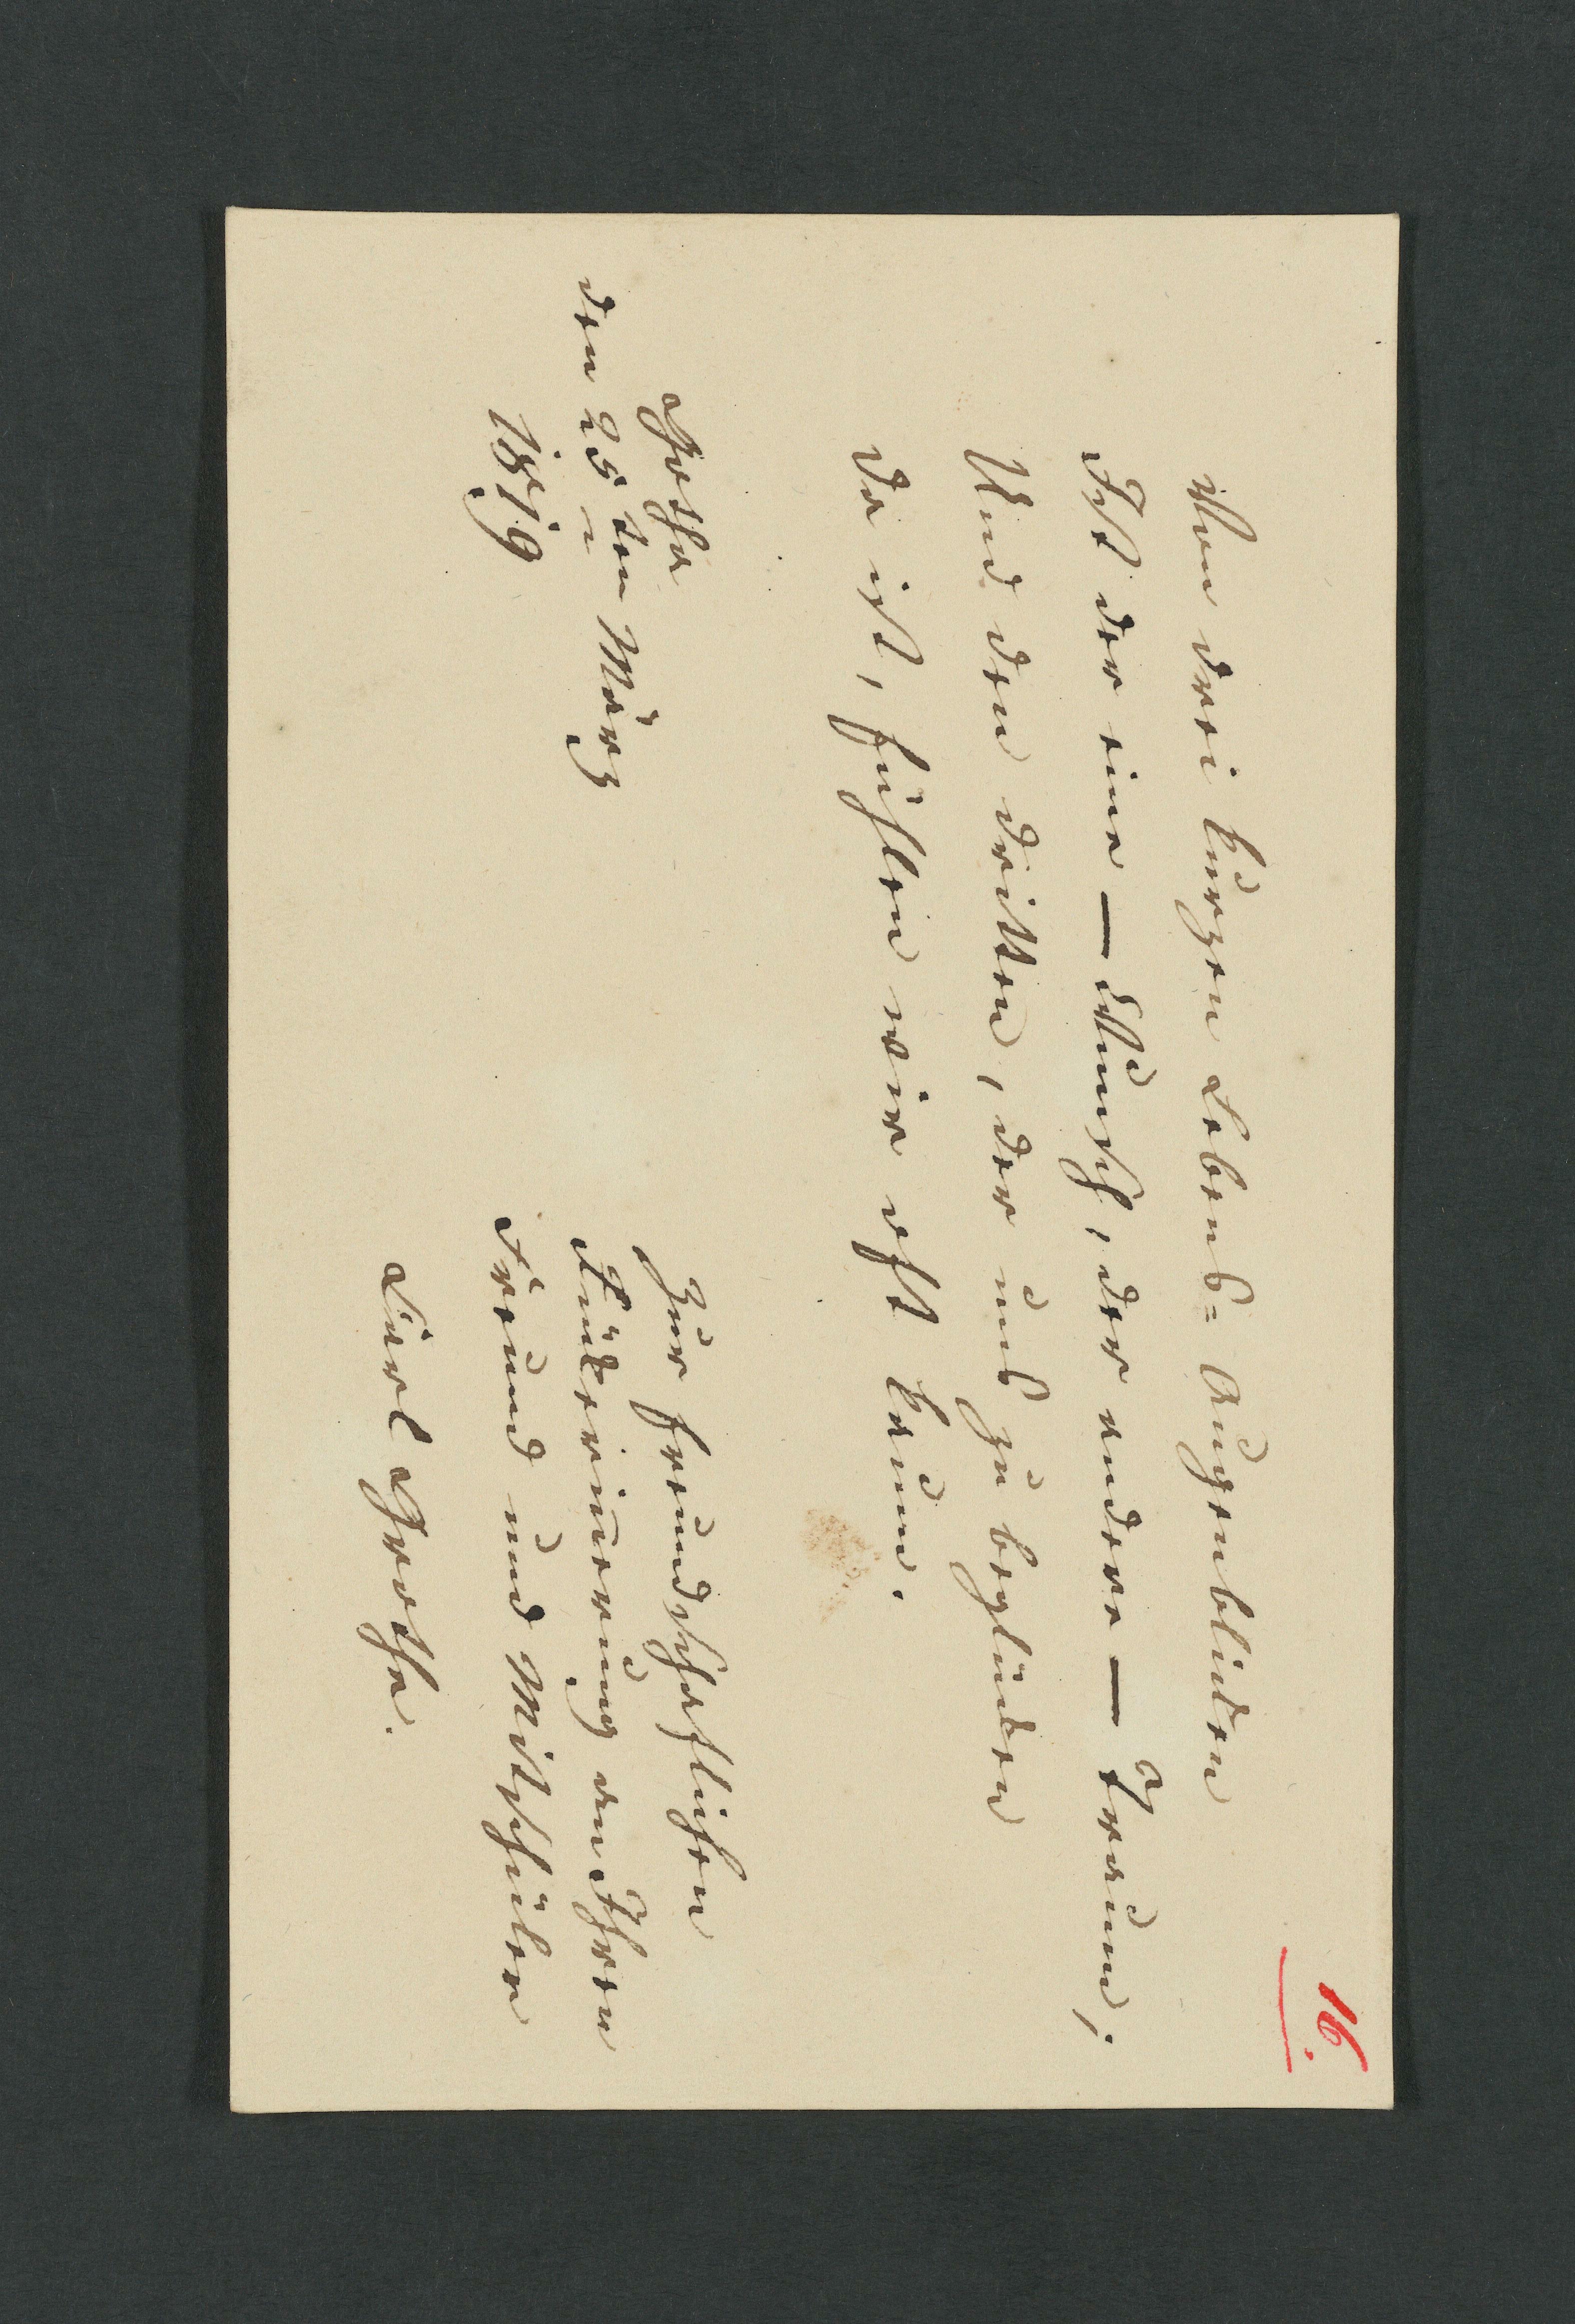 16.
Von drei kurzen Lebens- Augenblicken
Ist der eine — Wunsch, der andere — Traum,
Und den dritten, der uns zu beglücken
Da ist, fühlen wir oft kaum.
Gotha
den 25ten März
1819
Zur freundschaftlichen
Rückerinerung an Ihren
Freund und Mitschüler
Carl Grothe.